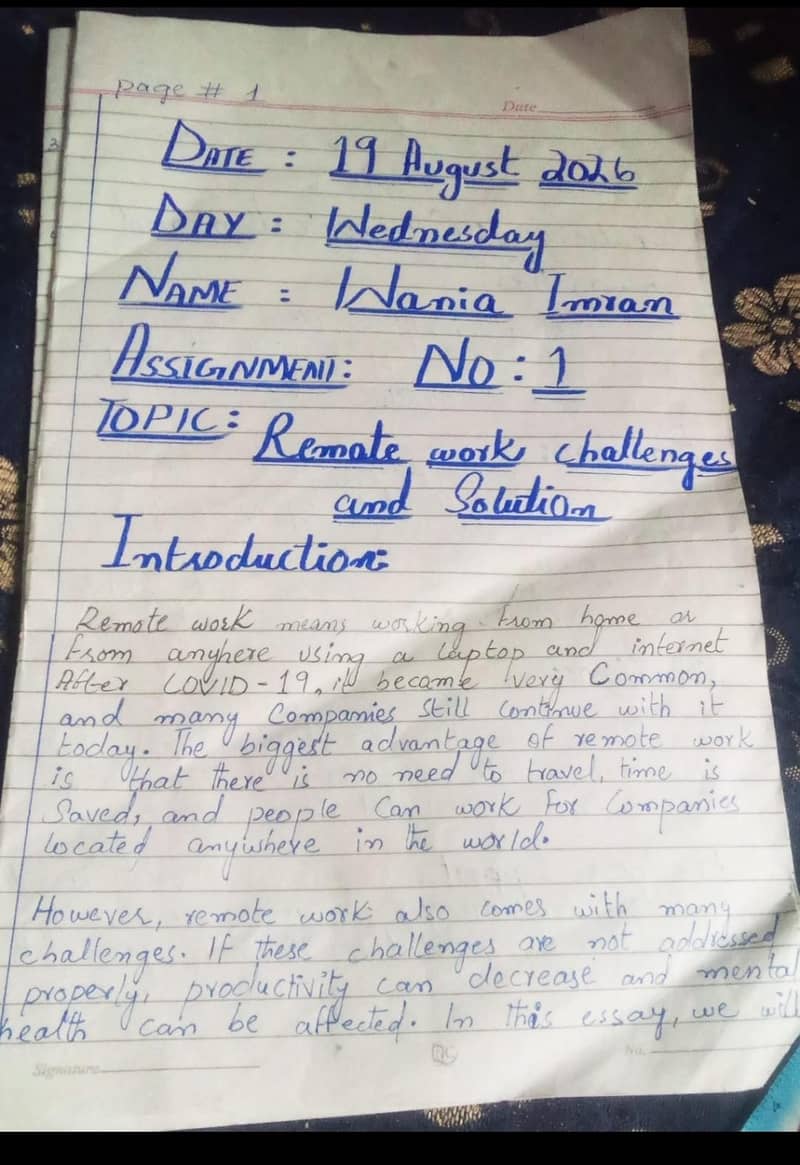 Page # 1
Date
DATE : 19 August 2026
DAY : Wednesday
NAME : Wania Imran
ASSIGNMENT: No: 1
TOPIC: Remote work challenges
and Solution
Introduction:
Remote work means working from home or
from anyhere using a laptop and internet
After COVID-19, it became very Common,
and many Companies Still Continue with it
today. The biggest advantage of remote work
is that there is no need to travel, time is
Saved, and people Can work for Companies
located anywhere in the world.
However, remote work also comes with many
challenges. If these challenges are not addressed
properly, productivity can decrease and mental
health can be affected. In this essay, we will
Signature
No.